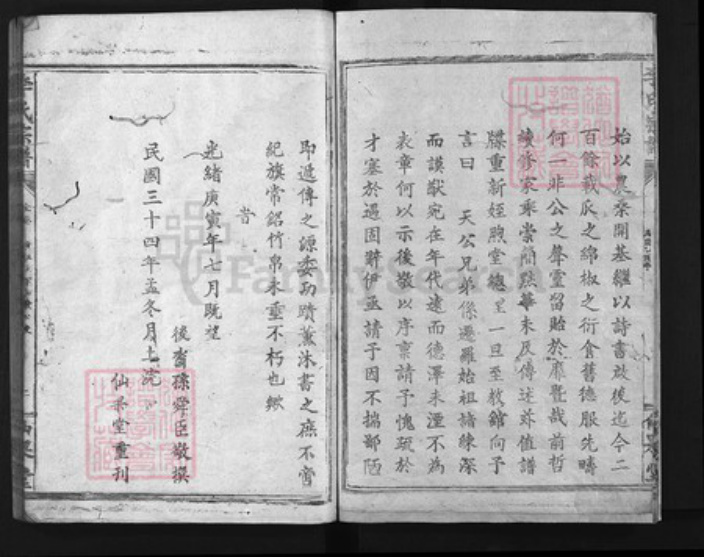 始以農桑開基繼以詩書啟後迄今二
百餘載瓜之綿椒之衍食舊德服先疇
何一非公之聲靈留貽於靡暨哉前哲
續修家乘崇簡黜華未及傳述茲值譜
牒重新姪煦堂總呈一旦至教館向予
言曰 天公兄弟係遷羅始祖諸練深
而謨猷宛在年代遠而德澤未湮不為
表章何以示後敬以序稟請予愧疏於
才塞於遇固辭伊亟請予因不揣鄙陋
即遞傳之源委功蹟薰沐書之庶不啻
紀旗常銘竹帛永垂不朽也歟
旹
光緒庚寅年七月既望
後裔孫舜臣敬撰
民國三十四年孟冬月上浣
仙 堂重刊
李氏宗譜
FamilySearch